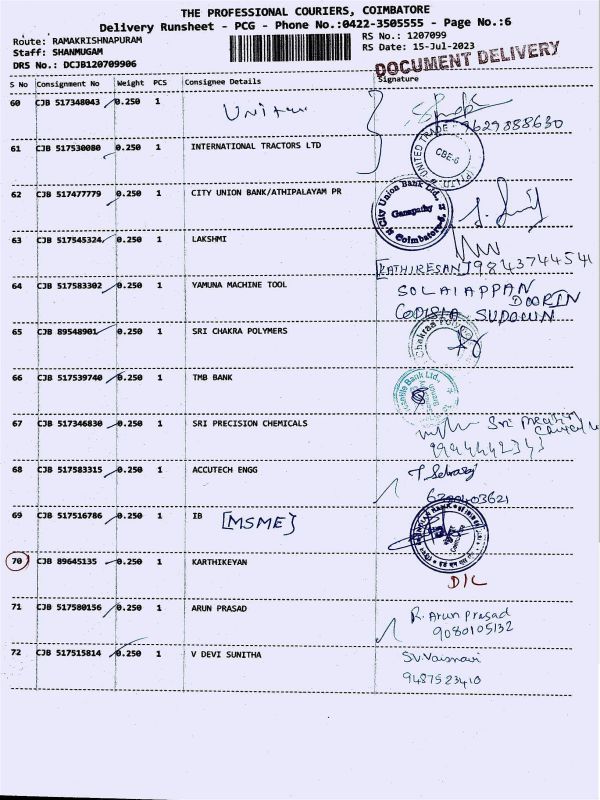 THE PROFESSIONAL COURIERS, COIMBATORE
Delivery Runsheet - PCG - Phone No.:0422-3505555 - Page No.:6
Route: RAMAKRISHNAPURAM
RS No.: 1207099
Staff: SHANMUGAM
RS Date: 15-Jul-2023
DRS No.: DCJB120709906
DOCUMENT DELIVERY
S No Consignment No Weight PCS Consignee Details Signature
60 CJB 517348043 0.250 1
9629888630
UNITED TRADE
CBE-6
61 CJB 517530080 0.250 1 INTERNATIONAL TRACTORS LTD
62 CJB 517477779 0.250 1 CITY UNION BANK/ATHIPALAYAM PR
City Union Bank Ltd.,
Ganapathy
Coimbatore
63 CJB 517545324 0.250 1 LAKSHMI
[KATHIRESAN] 9843744541
64 CJB 517583302 0.250 1 YAMUNA MACHINE TOOL
SOLAIAPPAN
CODISIA
65 CJB 89548901 0.250 1 SRI CHAKRA POLYMERS
Chakra
66 CJB 517539740 0.250 1 TMB BANK
Bank Ltd.,
67 CJB 517346830 0.250 1 SRI PRECISION CHEMICALS
Sri
68 CJB 517583315 0.250 1 ACCUTECH ENGG
T. Selvaraj
69 CJB 517516786 0.250 1 IB [MSME]
70 CJB 89645135 0.250 1 KARTHIKEYAN
D/L
71 CJB 517580156 0.250 1 ARUN PRASAD
R. Arun Prasad
9080105132
72 CJB 517515814 0.250 1 V DEVI SUNITHA
SV.Vaisnavi
9487523410